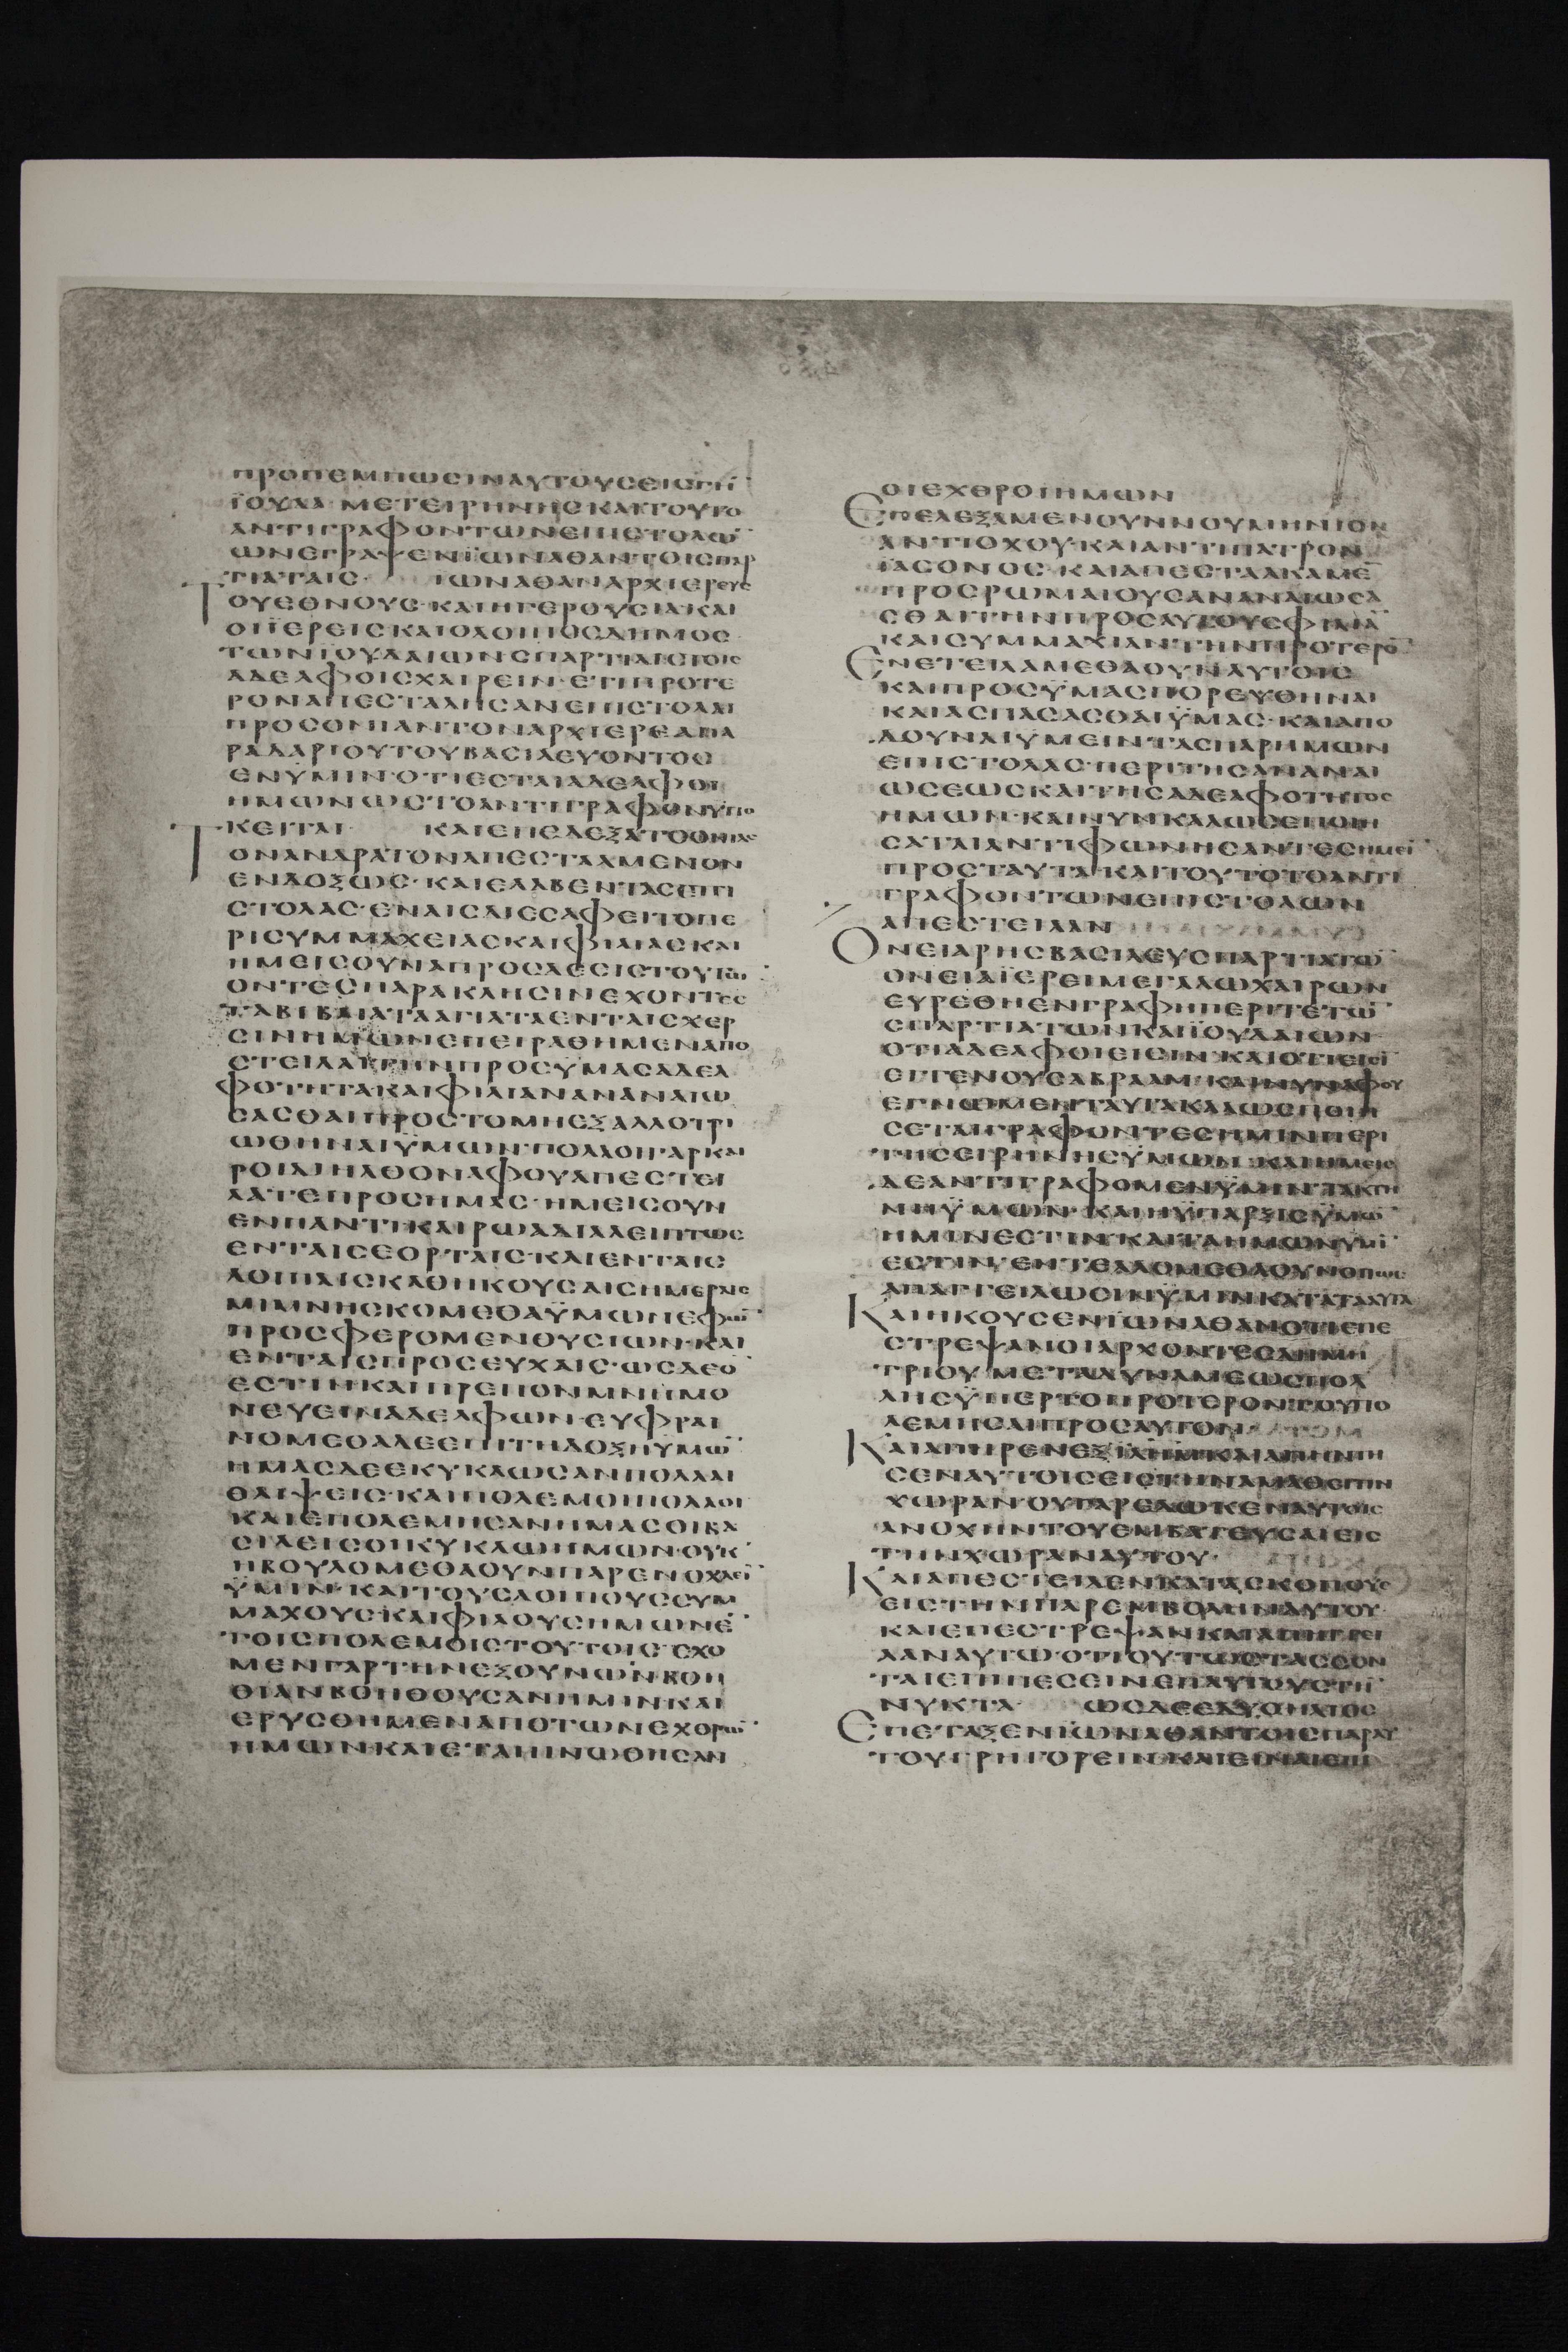 ΠΡΟΠΕΜΠΩCΙΝΑΥΤΟΥCΕΙCΓΗ̅
ΪΟΥΔΑ ΜΕΤΕΙΡΗΝΗC ΚΑΙΤΟΥΤΟ
ΑΝΤΙΓΡΑΦΟΝΤΩΝΕΠΙCΤΟΛΩ̅
ΩΝΕΓΡΑΨΕΝΪΩΝΑΘΑΝΤΟΙCΠΑΡ
ΤΙΑΤΑΙC· ΙΩΝΑΘΑΝΑΡΧΙΕΡΕΥC
ΤΟΥΕΘΝΟΥC·ΚΑΙΗΓΕΡΟΥCΙΑΚΑΙ
ΟΙΪΕΡΕΙCΚΑΙΟΛΟΙΠΟCΔΗΜΟC
ΤΩΝΪΟΥΔΑΙΩΝCΠΑΡΤΙΑΤΑΙCΤΟΙC
ΑΔΕΛΦΟΙCΧΑΙΡΕΙΝ·ΕΤΙΠΡΟΤΕ
ΡΟΝΑΠΕCΤΑΛΗCΑΝΕΠΙCΤΟΛΑΙ
ΠΡΟCΟΝΙΑΝΤΟΝΑΡΧΙΕΡΕΑΠΑ
ΡΑΔΑΡΙΟΥΤΟΥΒΑCΙΛΕΥΟΝΤΟC
ΕΝΫΜΙΝ·ΟΤΙΕCΤΑΙΑΔΕΛΦΟΙ
ΗΜΩΝΩCΤΟΑΝΤΙΓΡΑΦΟΝΥΠΟ
ΚΕΙΤΑΙ ΚΑΙΕΠΕΔΕΞΑΤΟΟΝΙΑC
ΤΟΝΑΝΔΡΑΤΟΝΑΠΕCΤΑΛΜΕΝΟΝ
ΕΝΔΟΞΩC·ΚΑΙΕΛΑΒΕΝΤΑCΕΠΙ
CΤΟΛΑC·ΕΝΑΙCΔΙΕCΑΦΕΙΤΟΠΕ
ΡΙCΥΜΜΑΧΕΙΑCΚΑΙΦΙΛΙΑCΚΑΙ
ΗΜΕΙCΟΥΝΑΠΡΟCΔΕΕΙCΤΟΥΤΩ̅
ΟΝΤΕCΠΑΡΑΚΛΗCΙΝΕΧΟΝΤΕC
ΤΑΒΙΒΛΙΑΤΑΑΓΙΑΤΑΕΝΤΑΙCΧΕΡ
CΙΝΗΜΩΝΕΠΕΙΡΑΘΗΜΕΝΑΠΟ
CΤΕΙΛΑΙΤΗΝΠΡΟCΫΜΑCΑΔΕΛ
ΦΟΤΗΤΑΚΑΙΦΙΛΙΑΝΑΝΑΝΑΙΩ
CΑCΘΑΙΠΡΟCΤΟΜΗΕΞΑΛΛΟΤΡΙ
ΩΘΗΝΑΙΫΜΩΝ·ΠΟΛΛΟΙΓΑΡΚΑΙ
ΡΟΙΔΙΗΛΘΟΝΑΦΟΥΑΠΕCΤΕΙ
ΛΑΤΕΠΡΟCΗΜΑC·ΗΜΕΙCΟΥΝ
ΕΝΠΑΝΤΙΚΑΙΡΩΑΔΙΑΛΕΙΠΤΩC
ΕΝΤΑΙCΕΟΡΤΑΙC·ΚΑΙΕΝΤΑΙC
ΛΟΙΠΑΙCΚΑΘΗΚΟΥCΑΙCΗΜΕΡΑΙC
ΜΙΜΝΗCΚΟΜΕΘΑΫΜΩΝΕΦΩ̅
ΠΡΟCΦΕΡΟΜΕΝΘΥCΙΩΝ·ΚΑΙ
ΕΝΤΑΙCΠΡΟCΕΥΧΑΙC·ΩCΔΕΟ̅
ΕCΤΙΝΚΑΙΠΡΕΠΟΝΜΝΗΜΟ
ΝΕΥΕΙΝΑΔΕΛΦΩΝ·ΕΥΦΡΑΙ
ΝΟΜΕΘΑΔΕΕΠΙΤΗΔΟΞΗΫΜΩ̅
ΗΜΑCΔΕΕΚΥΚΛΩCΑΝΠΟΛΛΑΙ
ΘΛΙΨΕΙC·ΚΑΙΠΟΛΕΜΟΙΠΟΛΛΟΙ
ΚΑΙΕΠΟΛΕΜΗCΑΝΗΜΑCΟΙΒΑ
CΙΛΕΙCΟΙΚΥΚΛΩΗΜΩΝ·ΟΥΚ
ΗΒΟΥΛΟΜΕΘΑΟΥΝΠΑΡΕΝΟΧΛΕΙ̅
ΫΜΙΝ·ΚΑΙΤΟΥCΛΟΙΠΟΥCCΥΜ
ΜΑΧΟΥCΚΑΙΦΙΛΟΥCΗΜΩΝΕ̅
ΤΟΙCΠΟΛΕΜΟΙCΤΟΥΤΟΙC·ΕΧΟ
ΜΕΝΓΑΡΤΗΝΕΞΟΥΝΩΝΒΟΗ
ΘΙΑΝΒΟΗΘΟΥCΑΝΗΜΙΝΚΑΙ
ΕΡΥCΘΗΜΕΝΑΠΟΤΩΝΕΧΘΡΩ̅
ΗΜΩΝΚΑΙΕΤΑΠΙΝΩΘΗCΑΝ
ΟΙΕΧΘΡΟΙΗΜΩΝ
ΕΠΕΛΕΞΑΜΕΝΟΥΝΝΟΥΜΗΝΙΟΝ
ΑΝΤΙΟΧΟΥ·ΚΑΙΑΝΤΙΠΑΤΡΟΝ
ΪΑCΟΝΟC·ΚΑΙΑΠΕCΤΑΛΚΑΜΕ̅
ΠΡΟCΡΩΜΑΙΟΥCΑΝΑΝΑΙΩCΑ
CΘΑΙΤΗΝΠΡΟCΑΥΤΟΥCΦΙΛΙΑ̅
ΚΑΙCΥΜΜΑΧΙΑΝΤΗΝΠΡΟΤΕΡΟ̅
ΕΝΕΤΕΙΛΑΜΕΘΑΟΥΝΑΥΤΟΙC
ΚΑΙΠΡΟCΫΜΑCΠΟΡΕΥΘΗΝΑΙ
ΚΑΙΑCΠΑCΑCΘΑΙΫΜΑC·ΚΑΙΑΠΟ
ΔΟΥΝΑΙΥΜΕΙΝΤΑCΠΑΡΗΜΩΝ
ΕΠΙCΤΟΛΑC·ΠΕΡΙΤΗCΑΝΑΝΑΙ
ΩCΕΩCΚΑΙΤΗCΑΔΕΛΦΟΤΗΤΟC
ΗΜΩΝ·ΚΑΙΝΥΝΚΑΛΩCΠΟΙΗ
CΑΤΑΙΑΝΤΙΦΩΝΗCΑΝΤΕCΗΜΕΙ̅
ΠΡΟCΤΑΥΤΑ·ΚΑΙΤΟΥΤΟΤΟΑΝΤΙ
ΓΡΑΦΟΝΤΩΝΕΠΙCΤΟΛΩΝ
ΑΠΕCΤΕΙΛΑΝ
ΟΝΕΙΑΡΗCΒΑCΙΛΕΥCCΠΑΡΤΙΑΤΩ̅
ΟΝΕΙΑΪΕΡΕΙΜΕΓΑΛΩΧΑΙΡΩΝ
ΕΥΡΕΘΗΕΝΓΡΑΦΗΠΕΡΙΤΕΤΩ̅
CΠΑΡΤΙΑΤΩΝΚΑΙΪΟΥΔΑΙΩΝ
ΟΤΙΑΔΕΛΦΟΙΕΙCΙΝ·ΚΑΙΟΤΙΕΙCΙ̅
ΕΓΓΕΝΟΥCΑΒΡΑΑΜ·ΚΑΙΝΥΝΑΦΟΥ
ΕΓΝΩΜΕΝΤΑΥΤΑΚΑΛΩCΠΟΙΗ
CΕΤΑΙΓΡΑΦΟΝΤΕCΗΜΙΝΠΕΡΙ
ΤΗCΕΙΡΗΝΗCΫΜΩΝ·ΚΑΙΗΜΕΙC
ΔΕΑΝΤΙΓΡΑΦΟΜΕΝΫΜΙΝΤΑΚΤΗ
ΝΗΫΜΩΝ·ΚΑΙΗΫΠΑΡΞΙCΫΜΩ̅
ΗΜΙΝΕCΤΙΝ·ΚΑΙΤΑΗΜΩΝΥΜΙ̅
ΕCΤΙΝ·ΕΝΤΕΛΛΟΜΕΘΑΟΥΝΟΠΩC
ΑΠΑΓΓΕΙΛΩCΙΝΫΜΙΝΚΑΤΑΤΑΥΤΑ
ΚΑΙΗΚΟΥCΕΝΪΩΝΑΘΑΝΟΤΙΕΠΕ
CΤΡΕΨΑΝΟΙΑΡΧΟΝΤΕCΔΗΜΗ
ΤΡΙΟΥ ΜΕΤΑΔΥΝΑΜΕΩCΠΟΛ
ΛΗCΫΠΕΡΤΟΠΡΟΤΕΡΟΝΤΟΥΠΟ
ΛΕΜΗCΑΙΠΡΟCΑΥΤΟΝ
ΚΑΙΑΠΗΡΕΝΕΞΪΛΗΜΚΑΙΑΠΗΝΤΗ
CΕΝΑΥΤΟΙCΕΙCΤΗΝΑΜΑΘΕΙΤΙΝ
ΧΩΡΑΝ·ΟΥΓΑΡΕΔΩΚΕΝΑΥΤΟΙC
ΑΝΟΧΗΝΤΟΥΕΜΒΑΤΕΥCΑΙΕΙC
ΤΗΝΧΩΡΑΝΑΥΤΟΥ·
ΚΑΙΑΠΕCΤΕΙΛΕΝΚΑΤΑCΚΟΠΟΥC
ΕΙCΤΗΝΠΑΡΕΜΒΟΛΗΝΑΥΤΟΥ
ΚΑΙΕΠΕCΤΡΕΨΑΝΚΑΙΑΠΗΓΓΕΙ
ΛΑΝΑΥΤΩ·ΟΤΙΟΥΤΩCΤΑCCΟΝ
ΤΑΙΕΠΙΠΕCΕΙΝΕΠΑΥΤΟΥCΤΗ̅
ΝΥΚΤΑ ΩCΔΕΕΔΥΟΗΛΙΟC
ΕΠΕΤΑΞΕΝΪΩΝΑΘΑΝΤΟΙCΠΑΡΑΥ
ΤΟΥΓΡΗΓΟΡΕΙΝ·ΚΑΙΕΙΝΑΙΕΠΙ